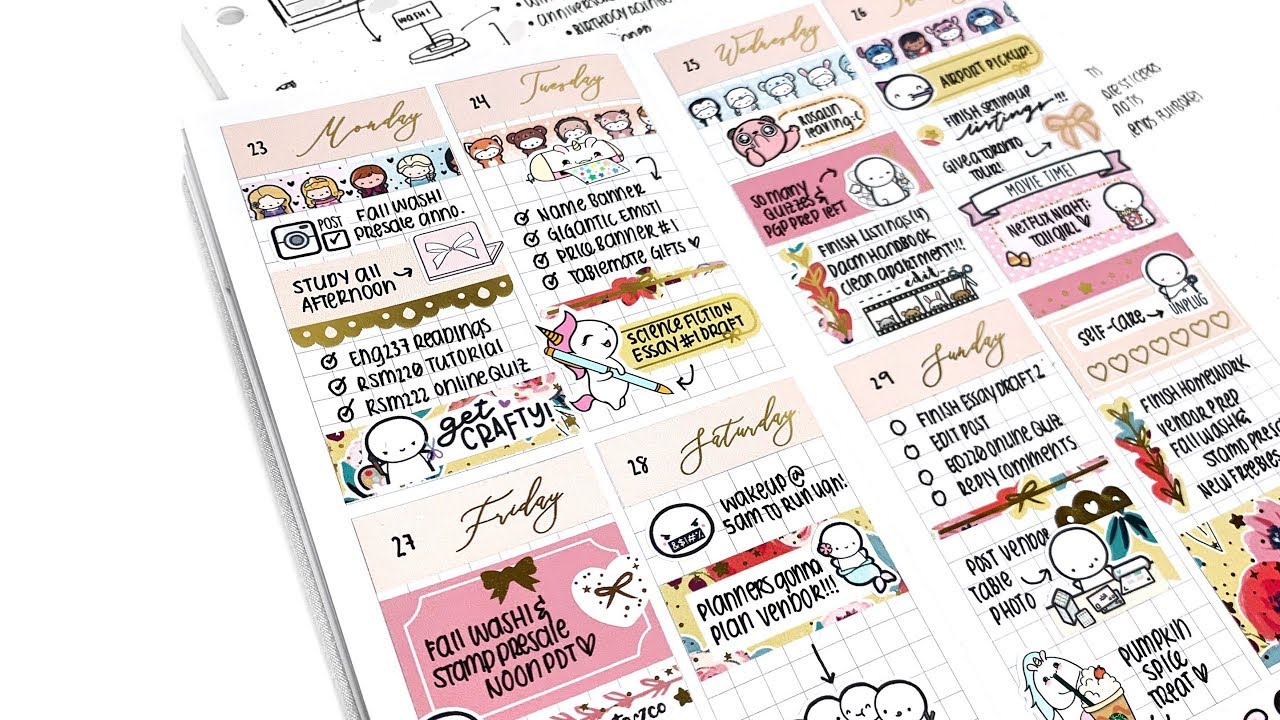 WASHI
BIRTHDAY
23
Monday
POST
Fall WASHI
PRESALE ANNO.
STUDY All
AFTERNOON
Eng237 READINGS
RSM220 TUTORIAL
RSM222 Online QUIZ
get
CRAFTY!
24
Tuesday
NAME BANNER
GIGANTIC EMOTI
PRIQ BANNER #1
TABLEMATE GIFTS
SCIENCE FICTION
ESSAY #1 DRAFT
25
Wednesday
ROSALIN
leaving :(
SO MANY
QUIZZES &
PGP PREP LEFT
FINISH LISTINGS (4)
DACM HANDBOOK
CLEAN APARTMENT!!!
edit
26
AIRPORT PICKUP!
FINISH SETTING UP
listings!!!
GIVE A TORONTO
TOUR!
MOVIE TIME!
NETFLIX NIGHT:
TALL GIRL
27
Friday
Fall WASHI &
STAMP PRESALE
NOON PDT
28
Saturday
WAKEUP @
5AM TO RUN VAN!
&$!#%
PLANNERS GONNA
PLAN VENDOR!!!
29
Sunday
FINISH ESSAY DRAFT 2
EDIT POST
EO220 ONLINE QUIZ
REPLY COMMENTS
POST VENDOR
TABLE
PHOTO
PUMPKIN
SPICE
TREAT
SELF-CARE
UNPLUG
FINISH HOMEWORK
VENDOR PREP
FALL WASHI &
STAMP PRESALE
NEW FREEBIES